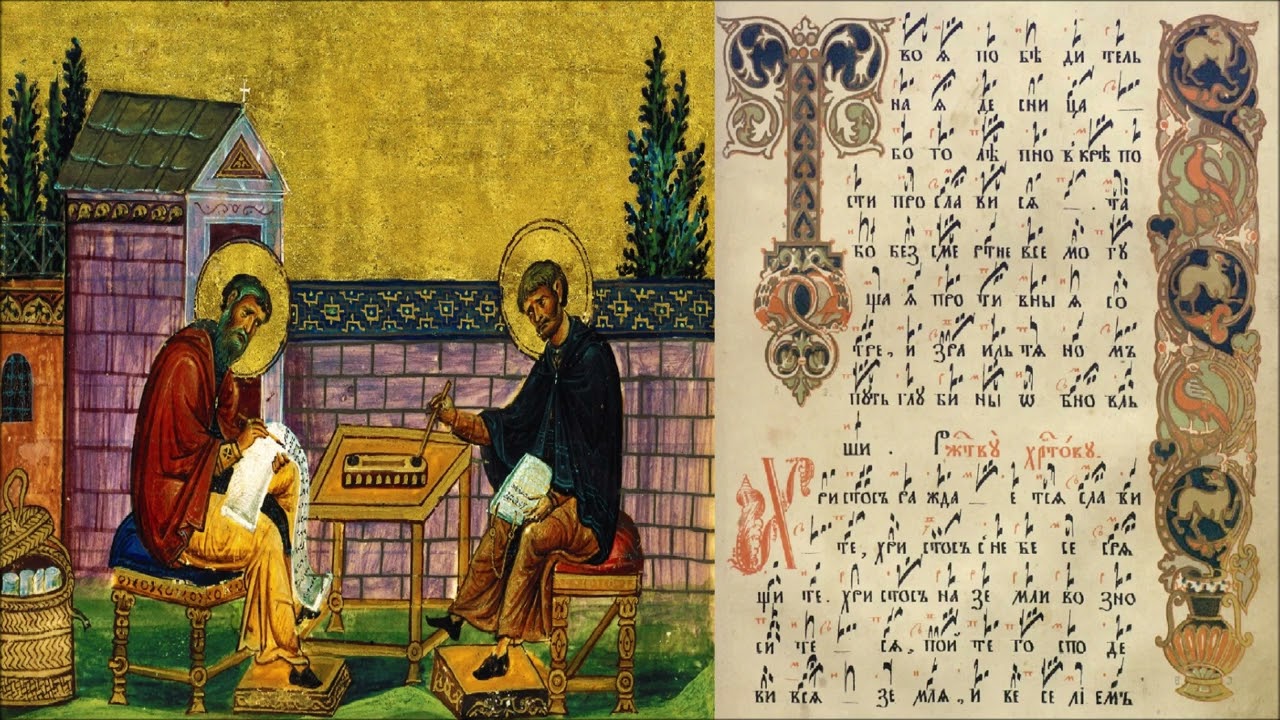 Тво ѧ по бѣ ди тель
на ѧ де сни ца —
бо то лѣ пно в крѣ по
сти про сла ви сѧ — . та
бо без сме ртне все мо гу
ща ѧ про ти вны ѧ со
тре, и зра иль тѧ но мъ
путь глу би ны ѡ бно вль
ши . Ржⷭ҇тву̀ хрⷭ҇то́ву.
Христосъ ра жда — е тсѧ сла ви
те, хри стосъ с не бе се срѧ
щи те. хри стосъ на зе мли во зно
си те — сѧ, пой те го спо де
ви всѧ зе млѧ, и ве се лі емъ